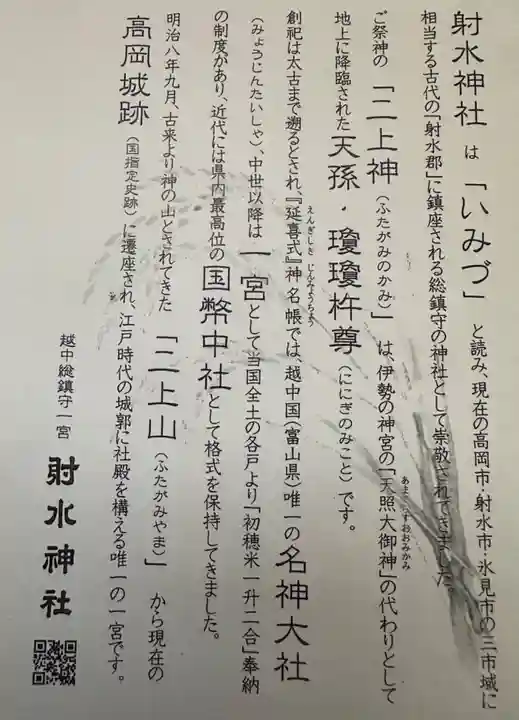 射水神社 は 「いみづ」 と読み、現在の高岡市・射水市・氷見市の三市域に
相当する古代の「射水郡」に鎮座される総鎮守の神社として崇敬されてきました。
ご祭神の 「二上神(ふたがみのかみ)」 は、伊勢の神宮の「天照大御神」の代わりとして
地上に降臨された 天孫・瓊瓊杵尊(ににぎのみこと)です。
創祀は太古まで遡るとされ、『延喜式』神名帳では、越中国(富山県)唯一の名神大社
(みょうじんたいしゃ)、中世以降は一宮として当国全土の各戸より「初穂米一升二合」奉納
の制度があり、近代には県内最高位の国幣中社として格式を保持してきました。
明治八年九月、古来より神の山とされてきた 「二上山(ふたがみやま)」 から現在の
高岡城跡(国指定史跡)に遷座され、江戸時代の城郭に社殿を構える唯一の一宮です。
越中総鎮守一宮 射水神社